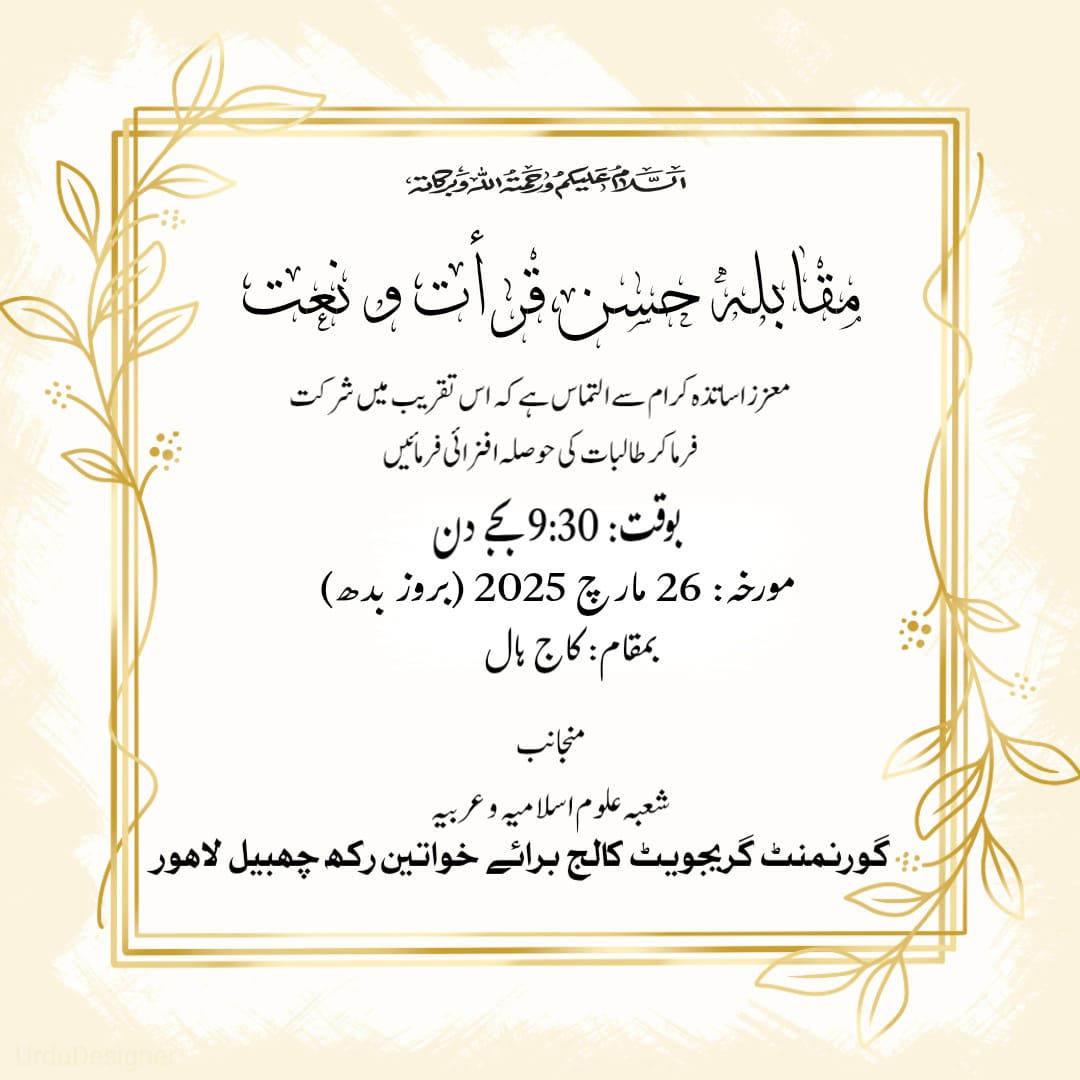 السلام علیکم ورحمتہ اللہ وبرکاتہ
مقابلہ حسن قرأت و نعت
معزز اساتذہ کرام سے التماس ہے کہ اس تقریب میں شرکت
فرما کر طالبات کی حوصلہ افزائی فرمائیں
بوقت: 9:30 بجے دن
مورخہ: 26 مارچ 2025 (بروز بدھ)
بمقام: کاج ہال
منجانب
شعبہ علوم اسلامیہ و عربیہ
گورنمنٹ گریجویٹ کالج برائے خواتین رکھ چھبیل لاہور
UrduDesigner